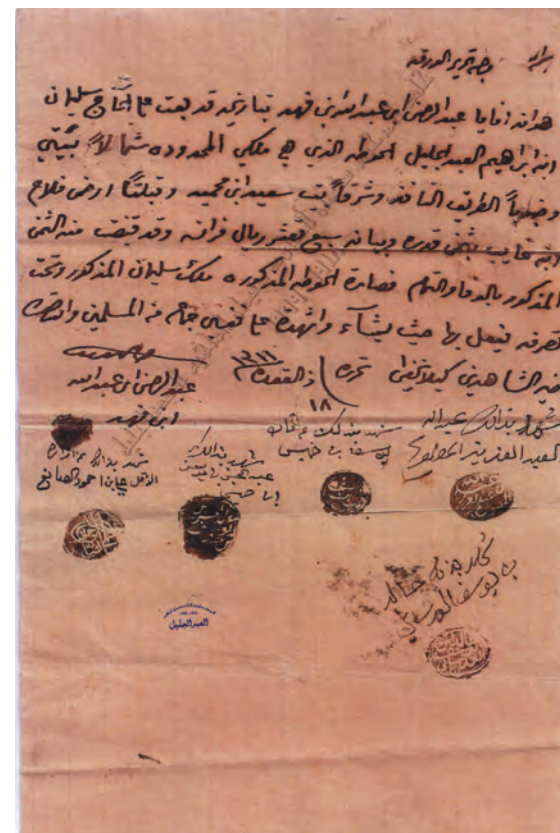 وجه تحرير الورقه
هو انه انا يا عبد الرحمن ابن عبد الله بن فهد تباريخه قد بعت على الحاج سليمان
ابن ابراهيم العبد الجليل الحوطه الذي هي ملكي المحدوده شمالاً بيتي
وجنوباً الطريق النافذ وشرقاً بيت سعيد ابن محميد وقبلتاً ارض فلاح
ابن بثمن قدره وبيانه سبع عشر ريال فرانسه وقد قبضت منه الثمن
المذكور بالوفا والتمام فصارة الحوطه المذكوره ملك سليمان المذكور وتحت
تصرفه يفعل بها حيث يشآء واشهدة على نفسي جماعه من المسلمين
خير الشاهدين كيلا يخفى تحرير ١٨ ذ القعده ١٣١١
عبد الرحمن ابن عبد الله
ابن فهد
شهد بذالك عبد الله
العبد العزيز المطوع
شهد بذلك
يوسف بن
شهد بذالك
عبد
شهد بذالك
احمود الصانع
شهد بذلك
بن يوسف
العبدالجليل